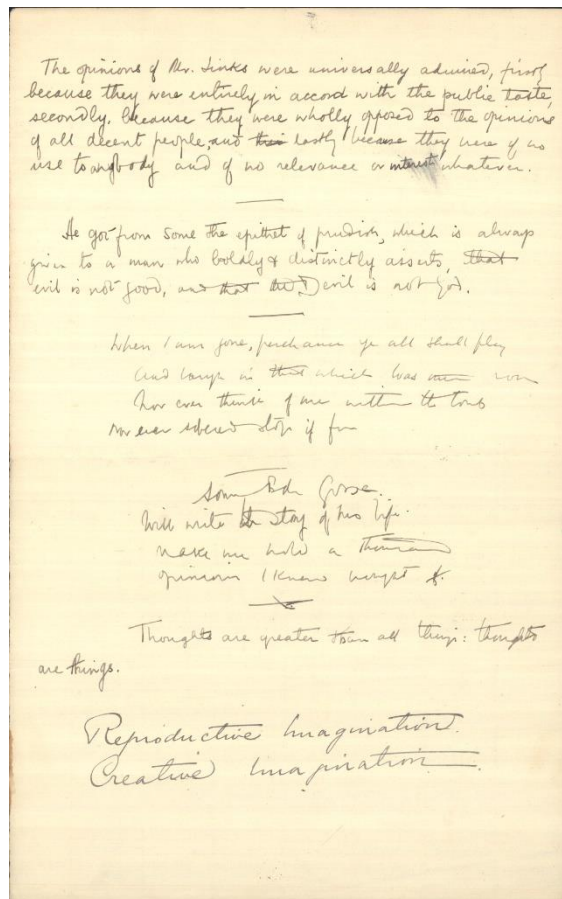 The opinions of Mr. Jinks were universally admired, firstly
because they were entirely in accord with the public taste,
secondly, because they were wholly opposed to the opinions
of all decent people, and this lastly because they were of no
use to anybody and of no relevance or interest whatever.
He got from some the epithet of prudish, which is always
given to a man who boldly & distinctly asserts, that
evil is not good, and that the Devil is not God.
When I am gone, perchance ye all shall play
And laugh in that which was
Nor ever think of me within the tomb
Nor ever stop if
Some Gosse.
Will write the story of his life.
make me hold a thousand
opinions I knew nought of.
Thoughts are greater than all things: thoughts
are things.
Reproductive Imagination.
Creative Imagination.